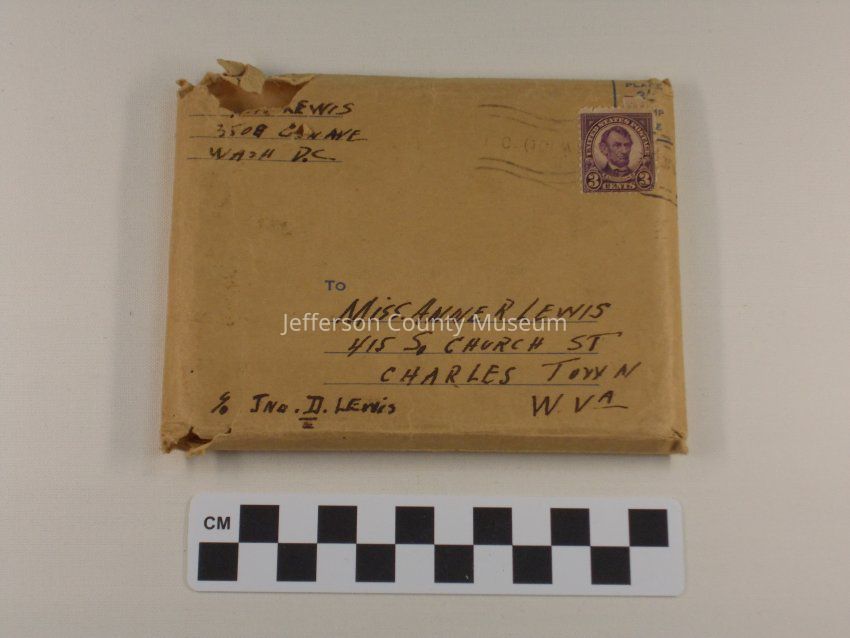 LEWIS
3508 CONN AVE
WASH D.C.
UNITED STATES POSTAGE
3 CENTS 3
TO
MISS ANNE R LEWIS
Jefferson County Museum
415 So CHURCH ST
CHARLES TOWN
W. VA
c/o JNO. D. LEWIS
CM